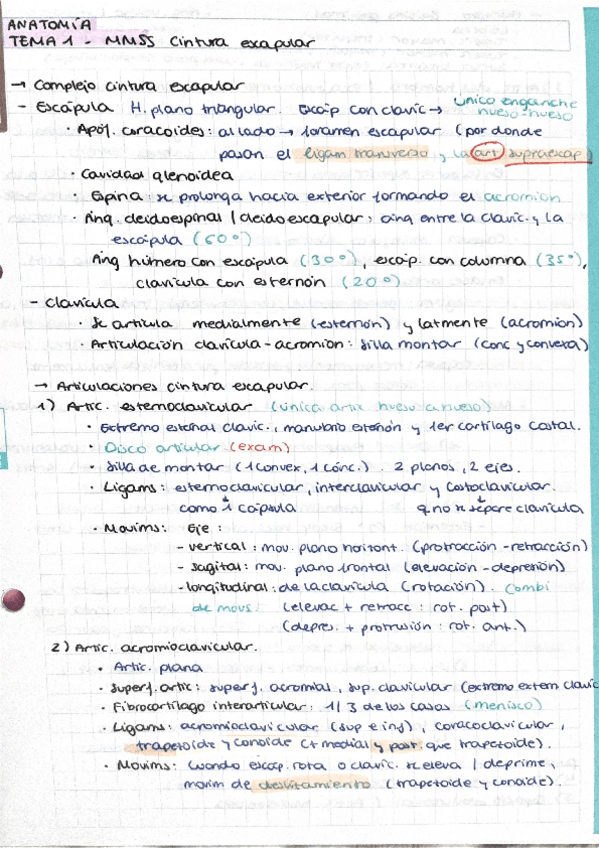 ANATOMÍA
TEMA 1 - MMSS Cintura escapular
→ Complejo cintura escapular
- Escápula H. plano triangular. Escáp con clavic → único enganche
hueso-hueso
· Apóf. coracoides: al lado → foramen escapular (por donde
pasan el ligam transverso, la art supraescap)
· Cavidad glenoidea
· Espina: se prolonga hacia exterior formando el acromion
· Áng. cleidoespinal / cleidoescapular: áng entre la clavic. y la
escápula (60°)
Áng húmero con escápula (30°), escáp. con columna (35°),
clavícula con esternón (20°)
- Clavícula
· Se articula medialmente (esternón) y latmente (acromion)
· Articulación clavícula-acromion: silla montar (conc y convexa)
→ Articulaciones cintura escapular.
1) Artic. esternoclavicular (única artic hueso a hueso)
· Extremo esternal clavic., manubrio esternón y 1er cartílago costal.
· Disco articular (exam)
· Silla de montar (1 convex, 1 cónc.). 2 planos, 2 ejes.
· Ligams: esternoclavicular, interclavicular y costoclavicular.
como 1 cápsula q no se separe clavícula
· Movims: Eje:
- vertical: mov. plano horizont. (protracción-retracción)
- sagital: mov. plano frontal (elevación-depresión)
- longitudinal: de la clavícula (rotación). Combi
de movs. (elevac + retracc: rot. post)
(depres. + protrusión: rot. ant.)
2) Artic. acromioclavicular.
· Artic. plana
· Superf. artic: superf. acromias, sup. clavicular (extremo extern clavic
· Fibrocartílago interarticular: 1/3 de los casos (menisco)
· Ligams: acromioclavicular (sup e inf), coracoclavicular,
trapezoide y conoide (+ medial y post. que trapezoide).
· Movims: Cuando escáp. rota o clavic. se eleva / deprime,
movim de deslizamiento (trapezoide y conoide).